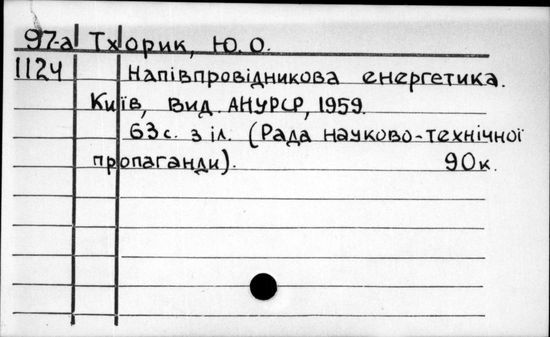 97-а Тхорик, Ю.О.
1124 Напівпровідникова енергетика.
Київ, Вид. АНУРСР, 1959.
63с. з іл. (Рада науково-технічної
пропаганди). 90к.